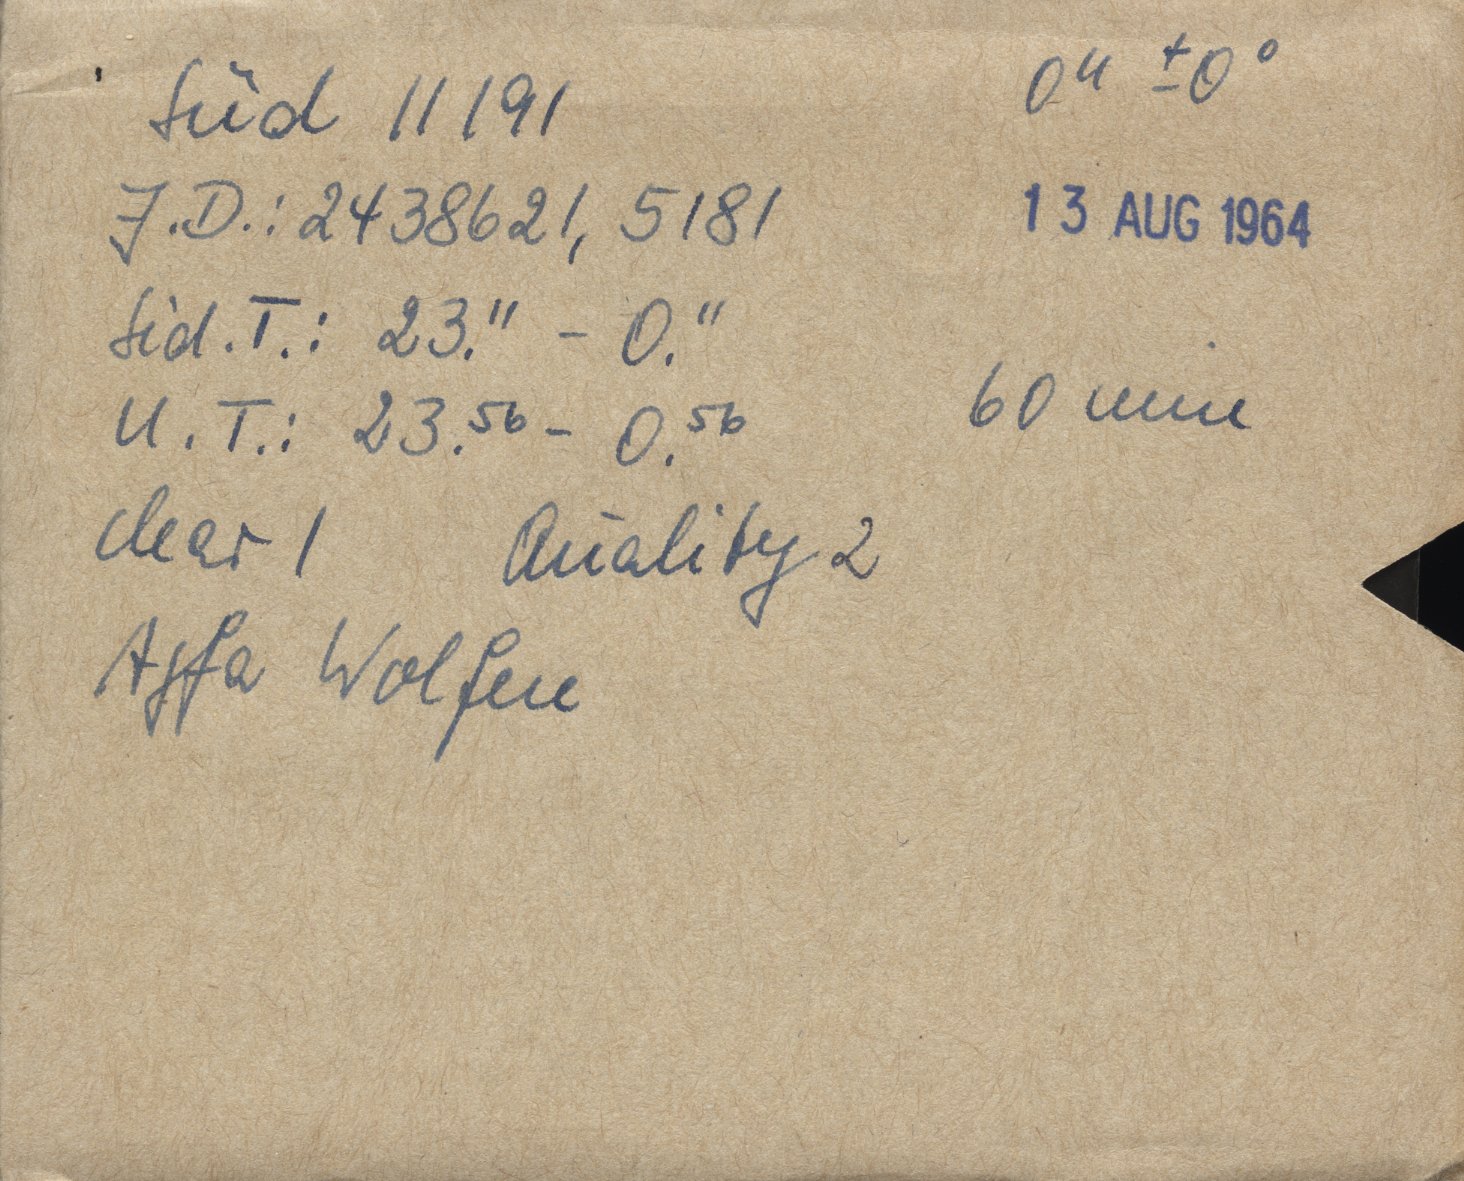 Süd 11191 0ʰ ±0°
J.D.: 2438621, 5181 13 AUG 1964
Sid.T.: 23.¹¹ – 0.¹¹
U.T.: 23.⁵⁶ – 0.⁵⁶ 60 min
clear 1 Quality 2
Agfa Wolfen